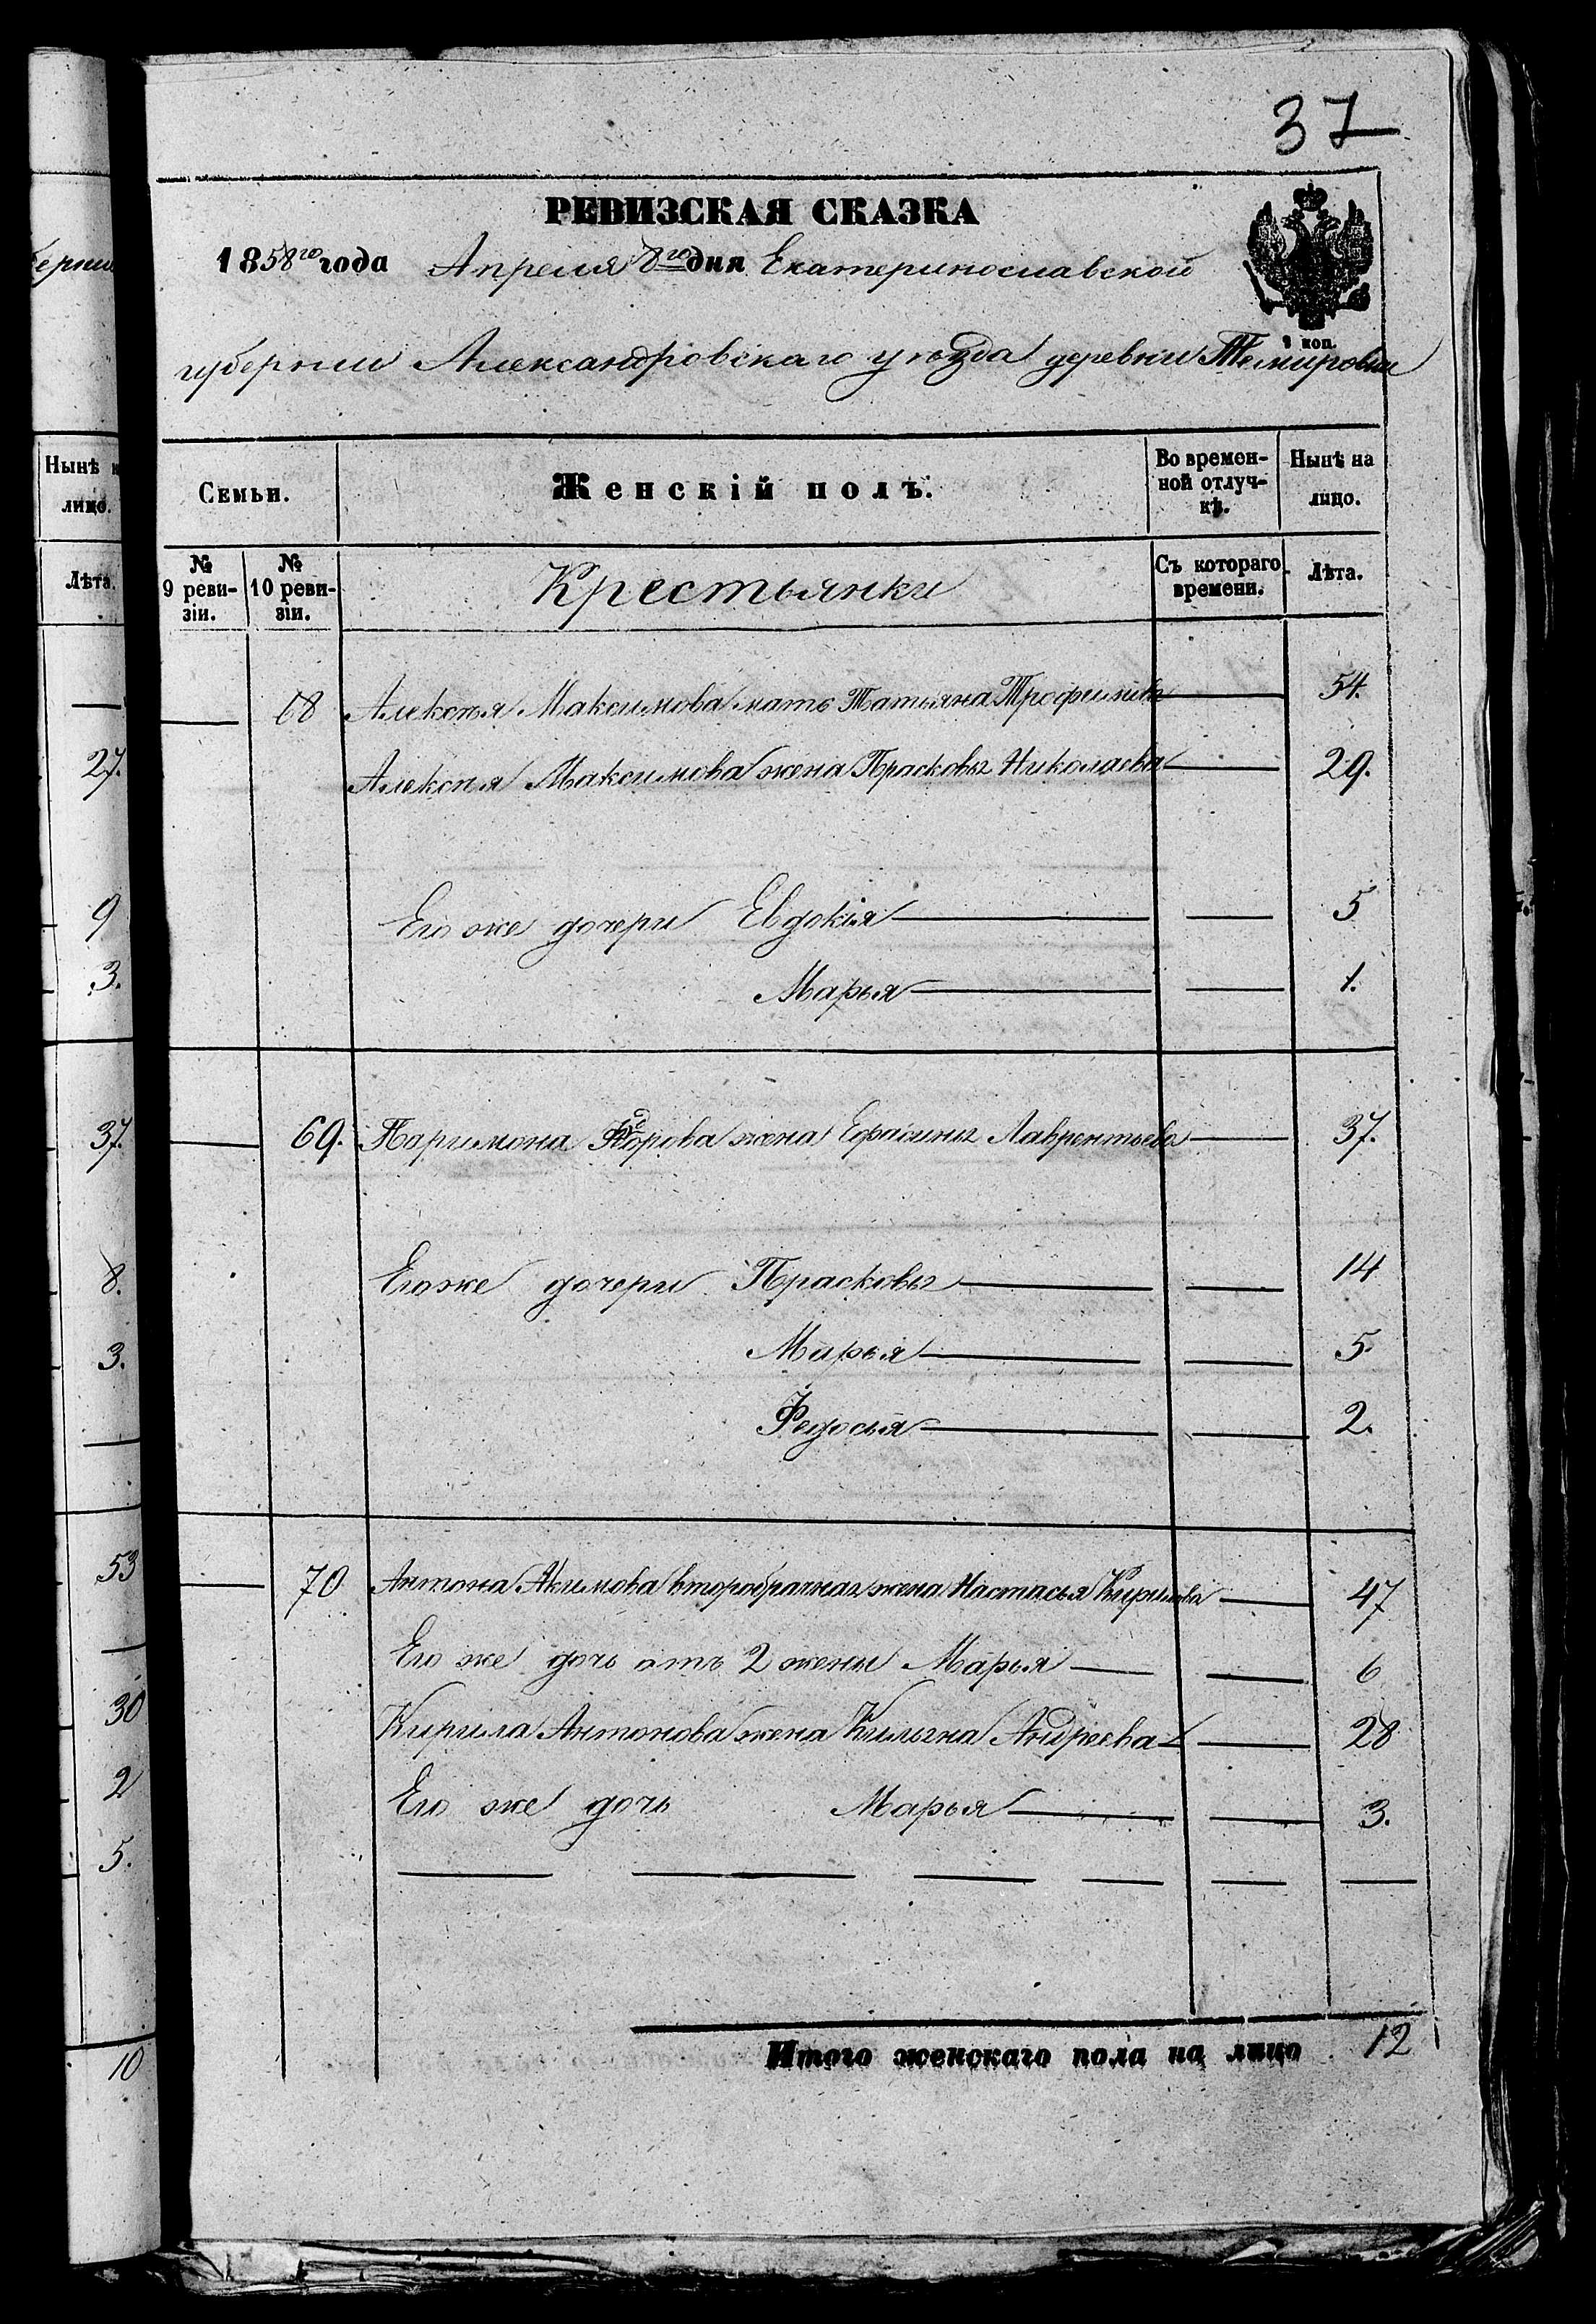 37
РЕВИЗСКАЯ СКАЗКА
1858го года Апреля 8го дня Екатеринославской
губернии Александровскаго уѣзда деревни Темировки
1 коп.
Семьи. Женскій полъ. Во времен- Нынѣ на
ной отлуч- лицо.
кѣ.
№ № Крестьянки Съ котораго Лѣта.
9 реви- 10 реви- времени.
зіи. зіи.
68 Алексѣя Максимова мать Татьяна Трофимова 54.
Алексѣя Максимова жена Прасковья Николаева 29.
Его же дочери Евдокія 5
Марья 1.
69. Паримона жена Ефросинья Лаврентьева 37.
Его же дочери Прасковья 14
Марья 5.
Федосья 2.
70 Антона Акимова второбрачная жена Настасья Кирилова 47
Его же дочь отъ 2 жены Марья 6
Кирила Антонова жена Андреева 28
Его же дочь Марья 3.
Итого женскаго пола на лицо 12
Нынѣ
лицо.
Лѣта.
27.
9
3.
37.
8.
3.
53
30
2
5.
10